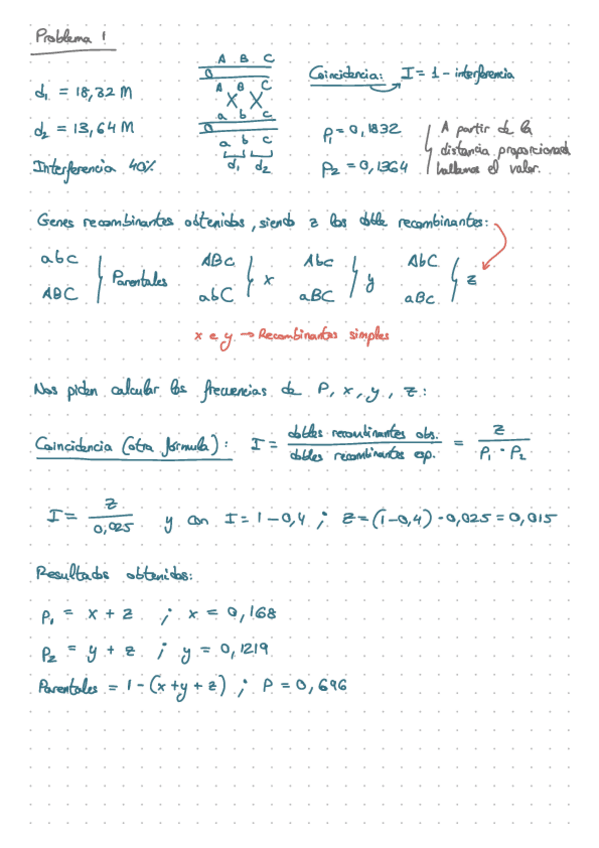 Problema 1
A B C
d₁ = 18,32 M
A B C
Coincidencia: I = 1 - interferencia
a b c
d₂ = 13,64 M
a b c
P₁ = 0,1832
A partir de la
distancia proporcionada
hallamos el valor.
Interferencia 40%
d₁ d₂
P₂ = 0,1364
Genes recombinantes obtenidos, siendo z los doble recombinantes:
abc ABc Abc AbC
Parentales x y z
ABC abC aBC aBc
x e y → Recombinantes simples
Nos piden calcular las frecuencias de P, x, y, z:
Coincidencia (otra fórmula): I = dobles recombinantes obs. / dobles recombinantes esp. = z / P₁ · P₂
I = z / 0,025 y con I = 1 - 0,4 ; z = (1-0,4) · 0,025 = 0,015
Resultados obtenidos:
P₁ = x + z ; x = 0,168
P₂ = y + z ; y = 0,1219
Parentales = 1 - (x + y + z) ; P = 0,696